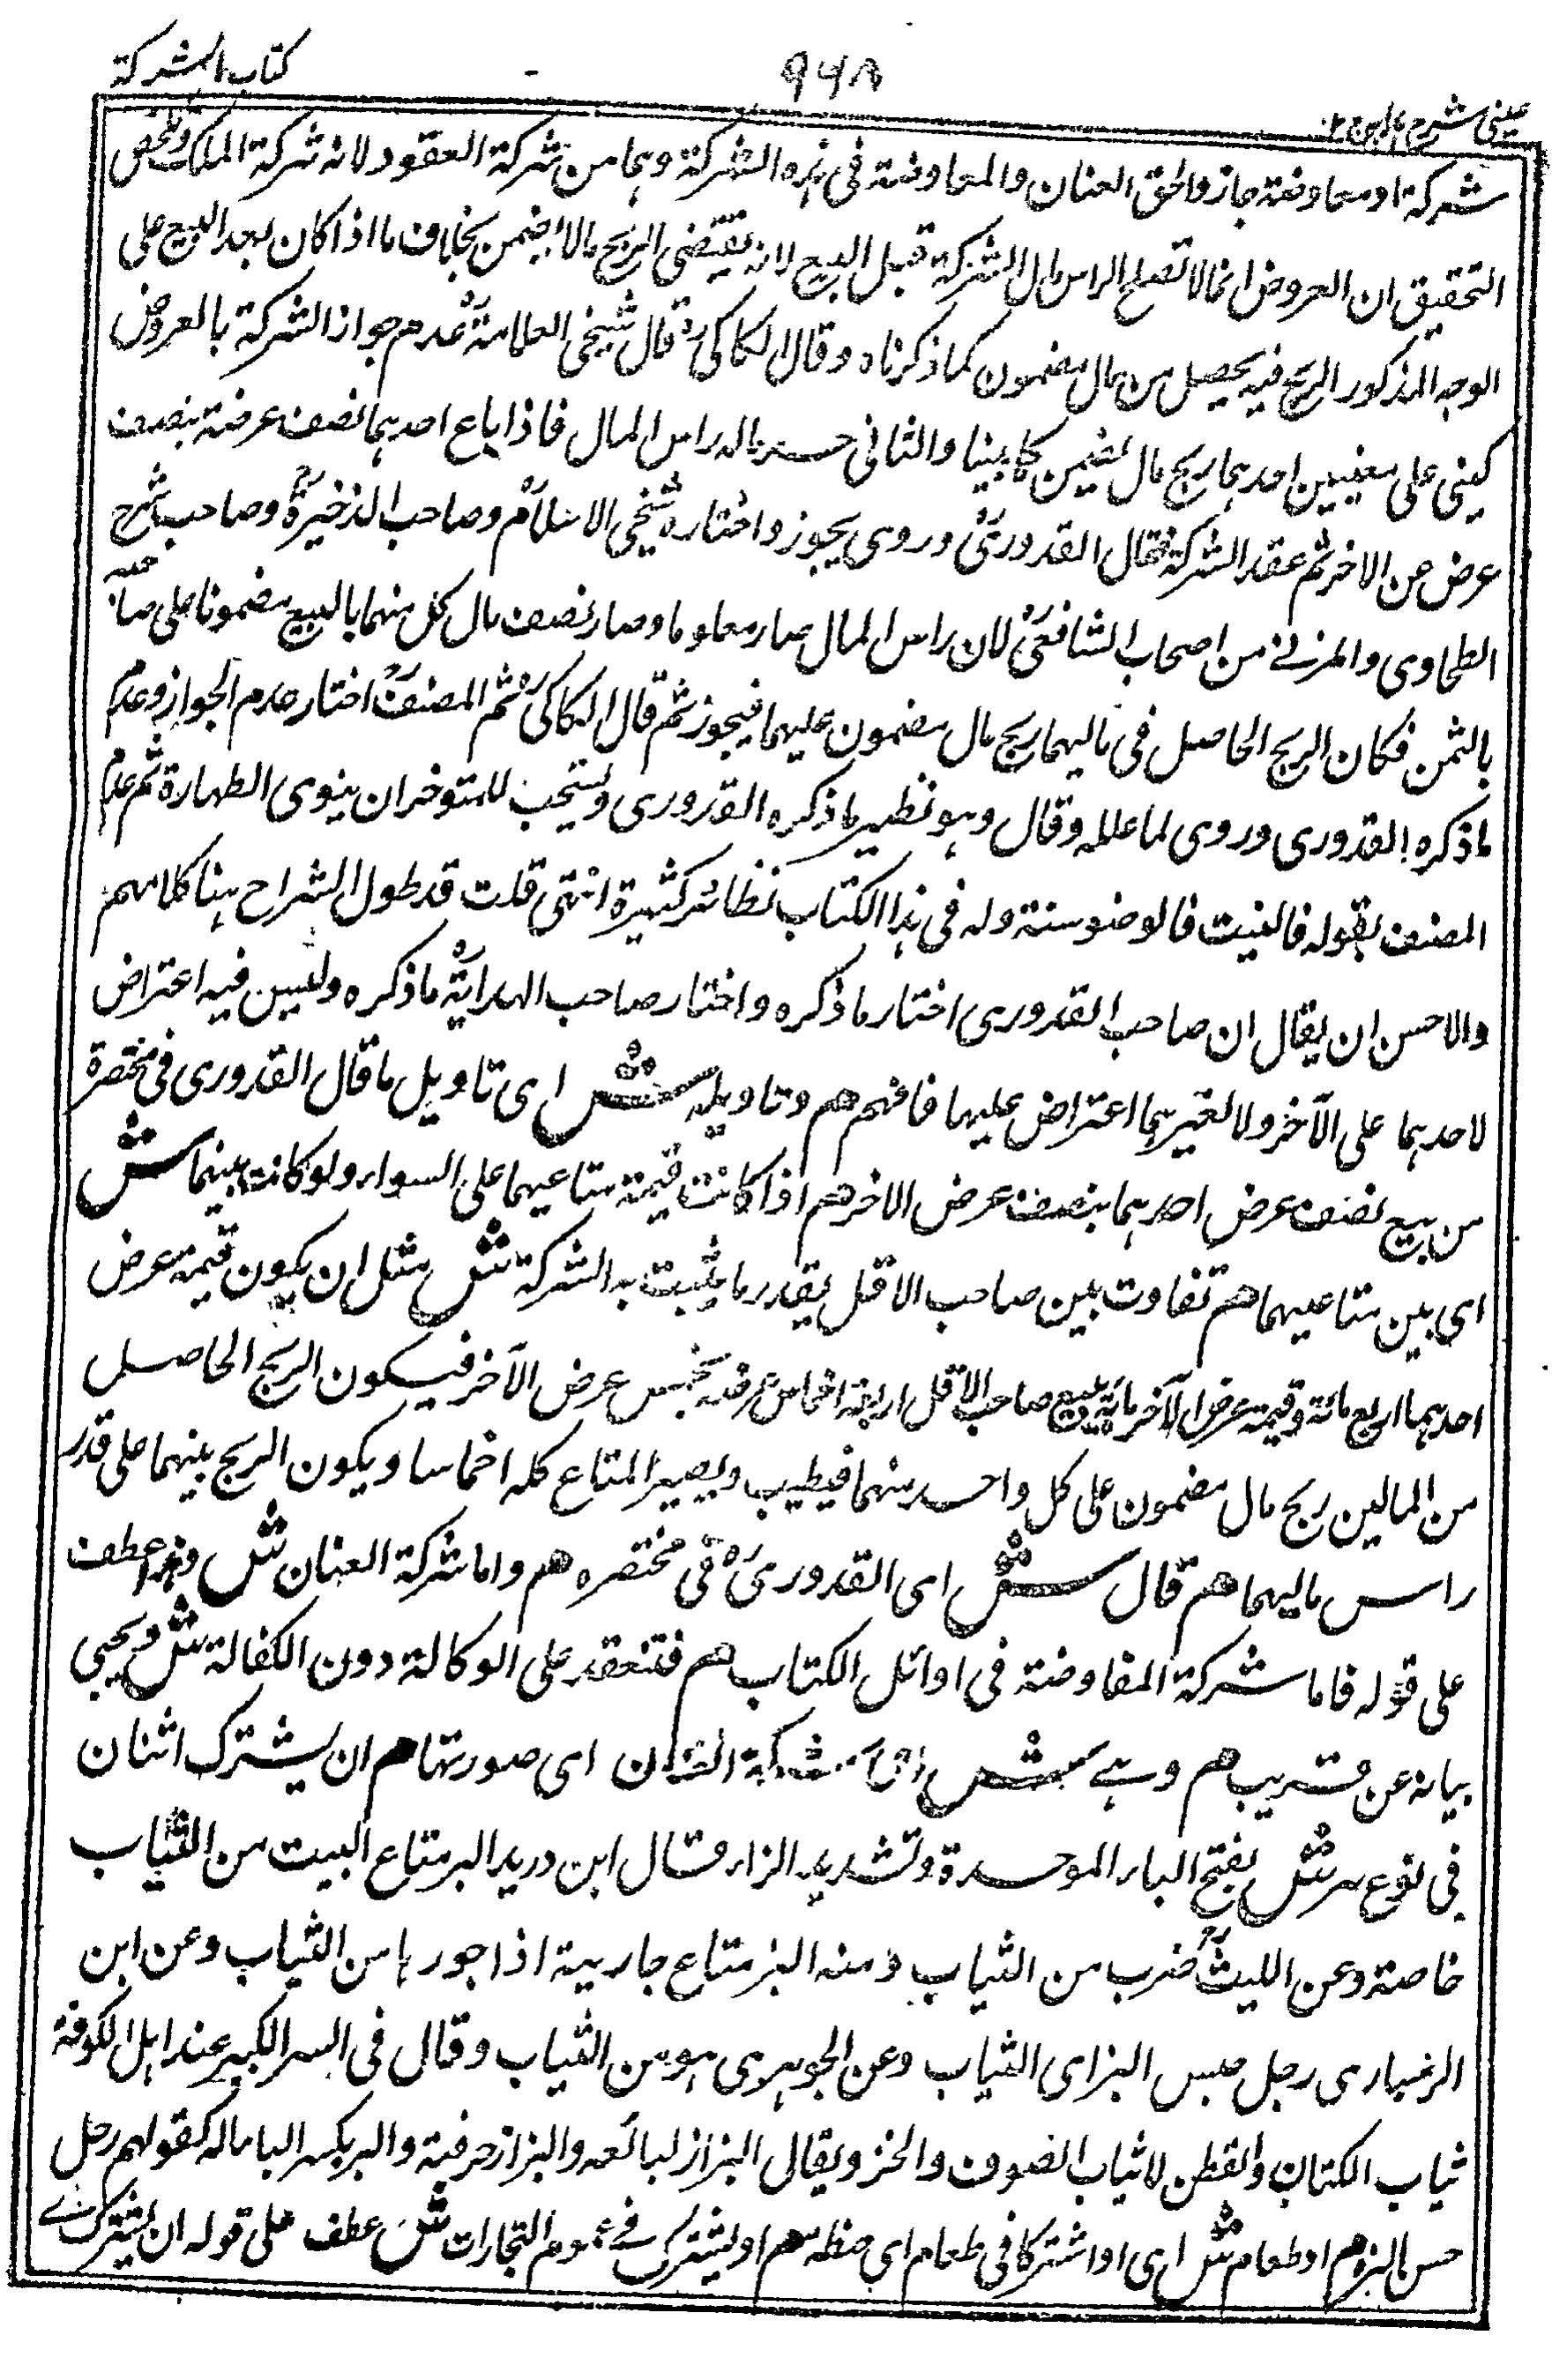 كتاب الشركة
٩٦٨
عينى شرح هدايه ج ٢
شركة او معاوضة جاز والحق العنان والمعاوضة فى هذه الشركة وهما من شركة العقود لانه شركة الملك
التحقيق ان العروض انما لا تصلح الراس مال الشركة قبل البيع لانه يقتضى الربح مالا يضمن بخلاف ما اذا كان بعد البيع على
الوجه المذكور الربح فيه يحصل من مال مضمون كما ذكرناه وقال الكاكى قال شيخى العلامة عدم جواز الشركة بالعروض
كينى على معنيين احدهما ربح مال يضمن كما بينا والثانى راس المال فاذا باع احدهما نصف عرضه بنصف
عرض من الاخر ثم عقد الشركة فقال القدورى وروى يجوز واختاره شيخى الاسلام وصاحب الذخيرة وصاحب شرح
الطحاوى والمزنے من اصحاب الشافعى لان راس المال صار معلوما وصار نصف مال كل منهما بالبيع مضمونا على صاحبه
بالثمن فكان الربح الحاصل فى ماليهما ربح مال مضمون عليهما فيجوز ثم قال الكاكى ثم المصنف اختار عدم الجواز وعدم
ما ذكره القدورى وروى لما علله وقال وهو نظير ما ذكره القدورى ويستحب للمتوضى ان ينوى الطهارة ثم عدم
المصنف بقوله فالنيت فالوضو سنة وله فى هذا الكتاب نظائر كثيرة انتهى قلت قد طول الشراح هنا كلامهم
والاحسن ان يقال ان صاحب القدورى اختار ما ذكره واختار صاحب الهداية ما ذكره وليس فيه اعتراض
لاحدهما على الآخر ولا لغيرهما اعتراض عليهما فافهم هم وتاويله ش اى تاويل ما قال القدورى فى مختصرة
من بيع نصف عرض احدهما بنصف عرض الاخر هم اذا كانت قيمة متاعيهما على السواء ولو كانت بينهما ش
اى بين متاعيهما هم تفاوت بين صاحب الاقل بقدر ما يثبت به الشركة ش مثل ان يكون قيمة عرض
احدهما اربع مائة وقيمة عرض الآخر مائة يبيع صاحب الاقل اربعة اخماس عرضه بخمس عرض الآخر فيكون الربح الحاصل
من المالين ربح مال مضمون على كل واحد منهما فيطيب ويصير المتاع كله اخماسا ويكون الربح بينهما على قدر
راس ماليهما هم قال ش اى القدورى فى مختصره هم واما شركة العنان ش وهذا عطف
على قوله فاما شركة المفاوضة فى اوائل الكتاب هم فتنعقد على الوكالة دون الكفالة ش ويجيى
بيانه عن قريب هم وهے ش اى شركة العنان اى صورتها هم ان يشترك اثنان
فى نوع بز ش بفتح الباء الموحدة وتشديد الزاء وقال ابن دريد البز متاع البيت من الثياب
خاصة وعن الليث ضرب من الثياب ومنه البز متاع جارية اذا جورها من الثياب وعن ابن
رجل حبس البز اى الثياب وعن الجوهرى هو من الثياب وقال فى السر الكبير عند اهل الكوفة
ثياب الكتان والقطن لا ثياب الصوف والخز ويقال البزاز لبائعه والبزاز حرفته والبز بكسر الباء ماله كقولهم رجل
حسن البز هم او طعام ش اى او اشتركا فى طعام اى حنطة هم او يشترك فے عموم التجارات ش عطف على قوله ان يشترك فے